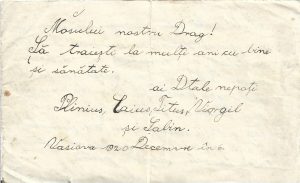 Moșului nostru Drag!
Să trăiești la mulți ani cu bine
și sănătate.
ai Dtale nepoți
Plinius, Caius, Titus, Virgil
și Salin.
Vasiova Decemvrie